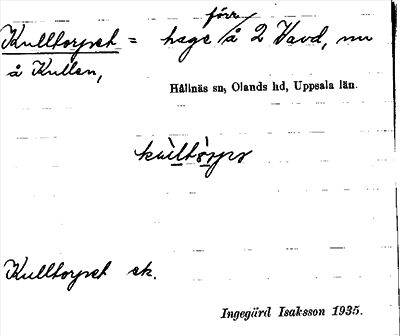 Kulltorpet = hage förr å 2 Vavd, nu
å Kullen,
Hållnäs sn, Olands hd, Uppsala län.
Kulltorpet ek.
Ingegärd Isaksson 1935.